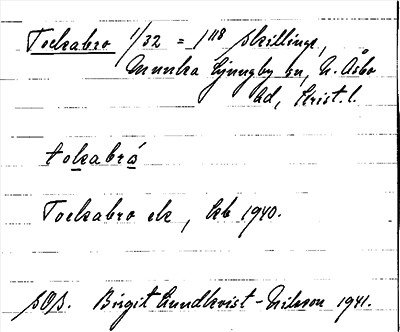 Tockabro 1/32 = 1 118 skillings,
Munka Ljungby sn, N. Åsbo
hd, Krist. l.
tokabrá
Tockabro ek, kb 1940.
Birgit Lundkvist-Nilsson 1941.